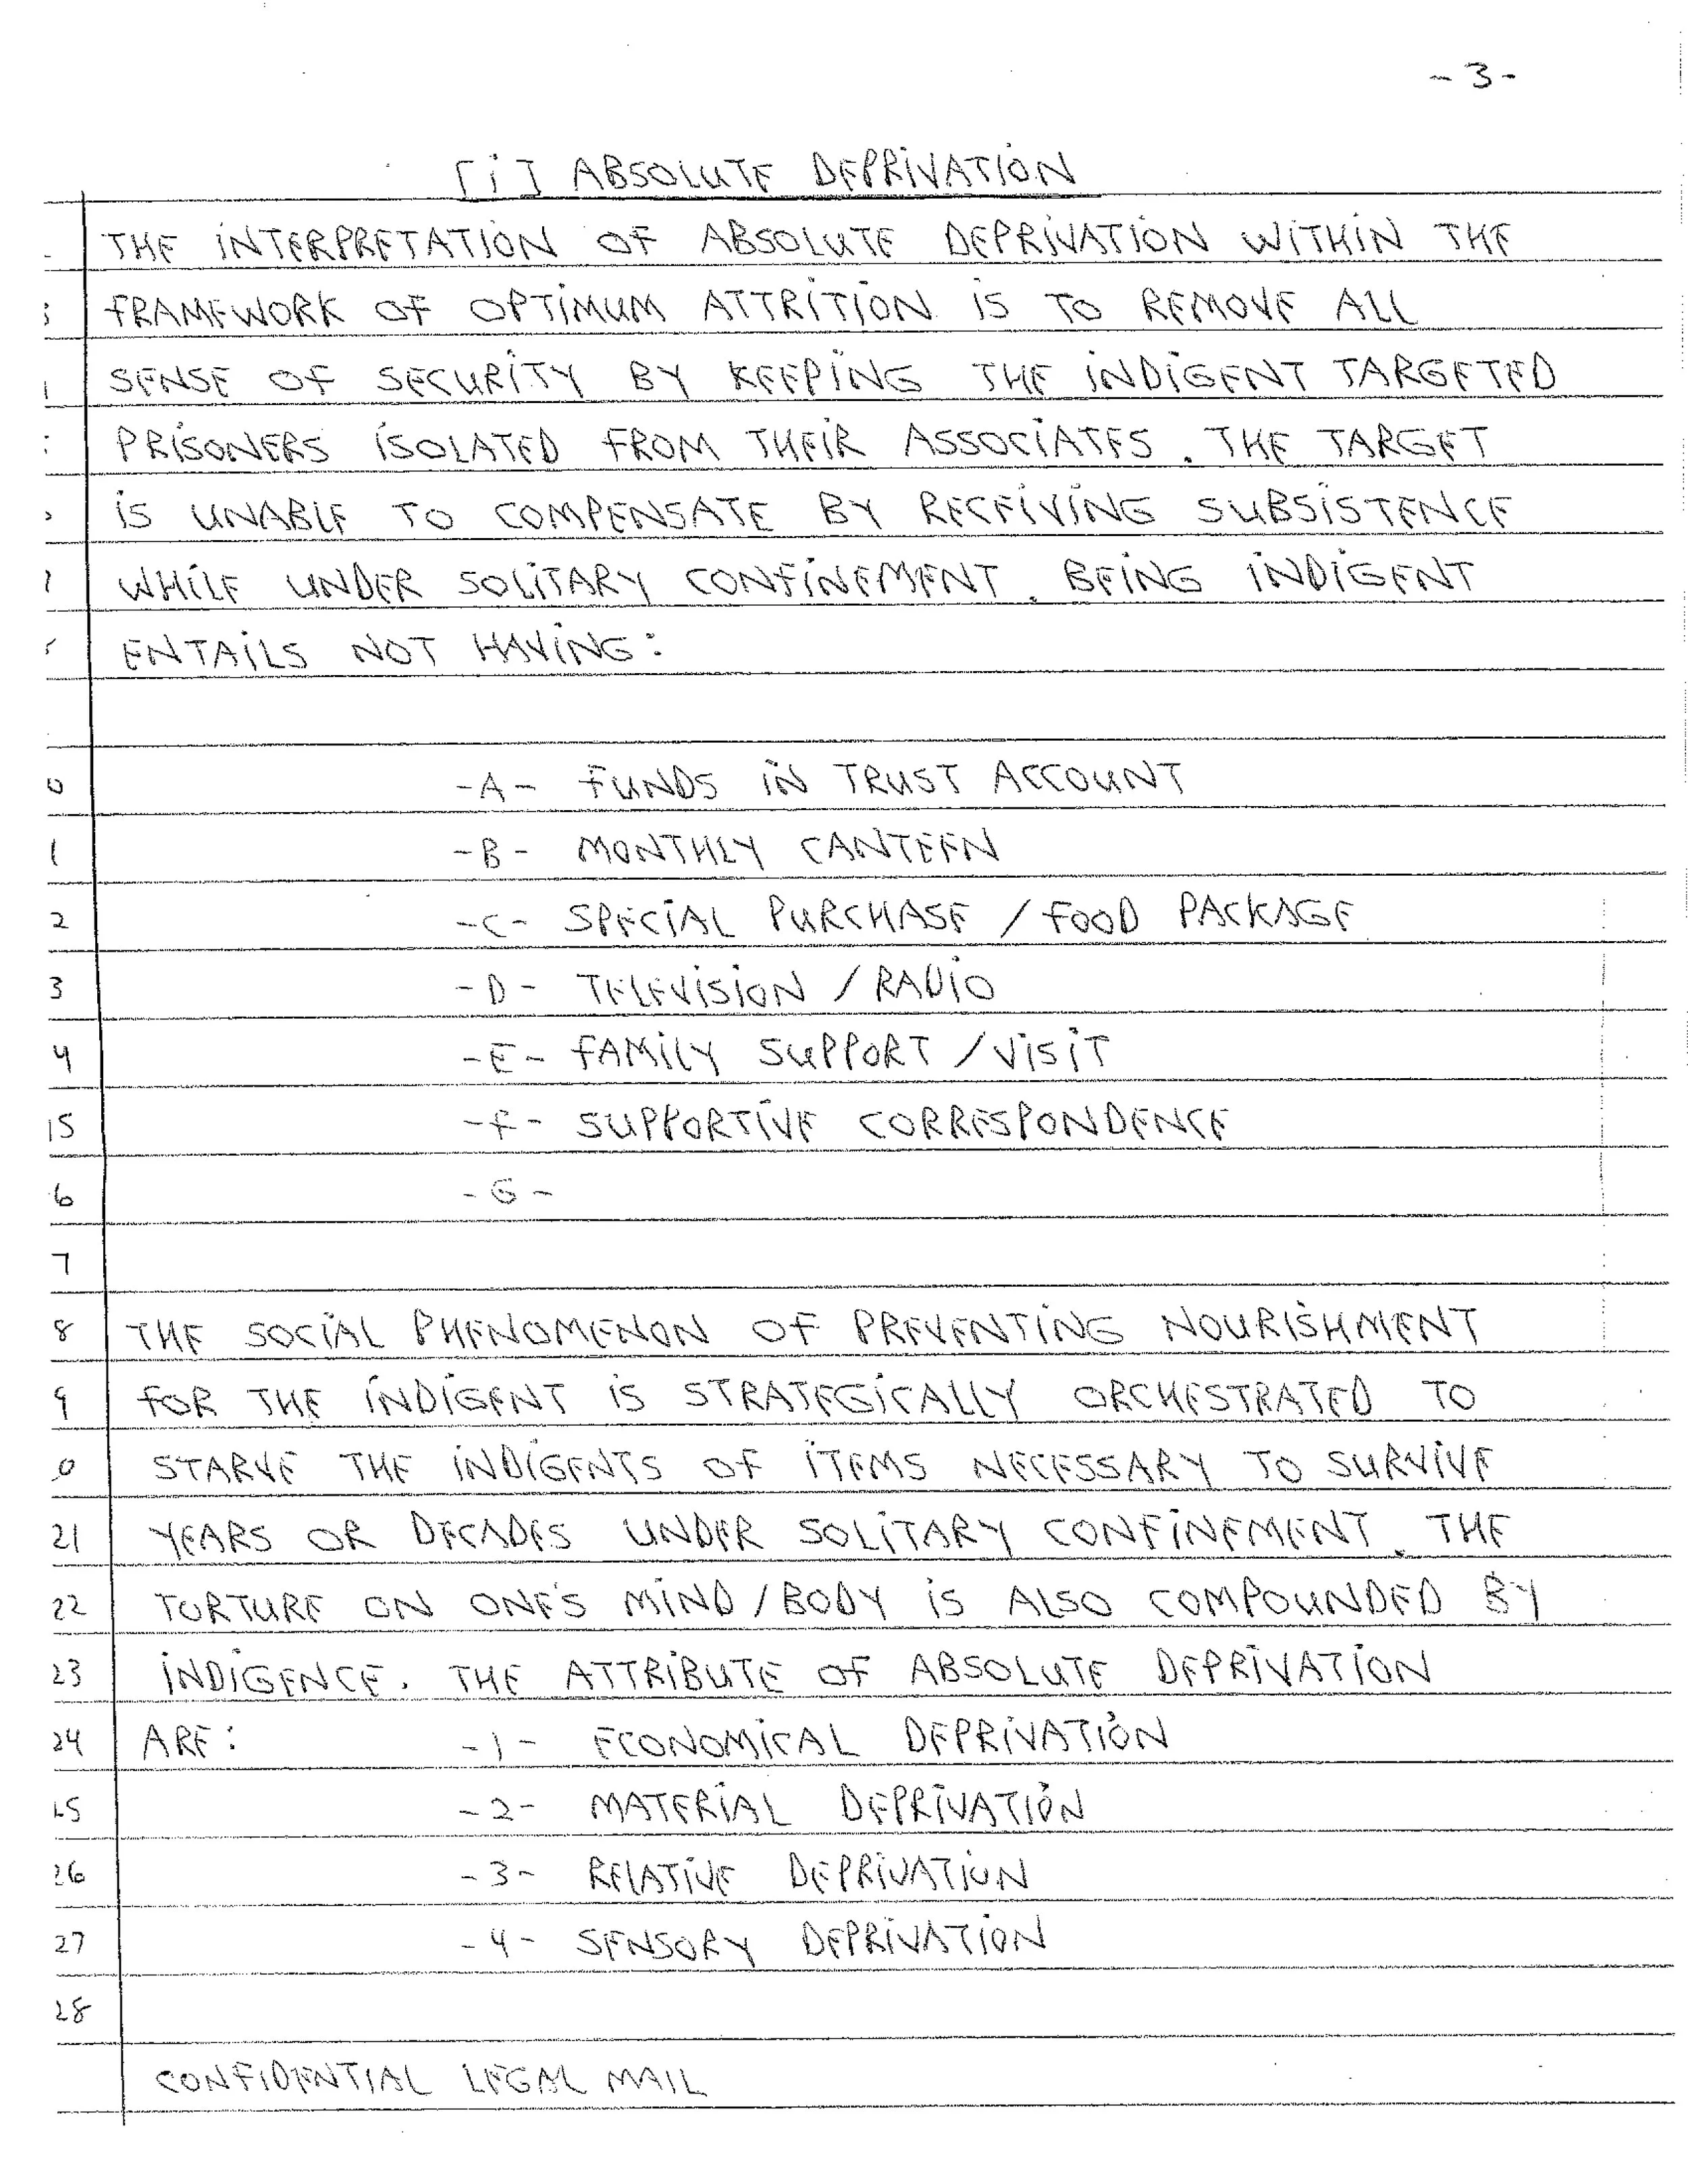 - 3 -
[i] ABSOLUTE DEPRIVATION
THE INTERPRETATION OF ABSOLUTE DEPRIVATION WITHIN THE
FRAMEWORK OF OPTIMUM ATTRITION IS TO REMOVE ALL
SENSE OF SECURITY BY KEEPING THE INDIGENT TARGETED
PRISONERS ISOLATED FROM THEIR ASSOCIATES. THE TARGET
IS UNABLE TO COMPENSATE BY RECEIVING SUBSISTENCE
WHILE UNDER SOLITARY CONFINEMENT. BEING INDIGENT
ENTAILS NOT HAVING:
0 -A- FUNDS IN TRUST ACCOUNT
1 -B- MONTHLY CANTEEN
2 -C- SPECIAL PURCHASE / FOOD PACKAGE
3 -D- TELEVISION / RADIO
4 -E- FAMILY SUPPORT / VISIT
15 -F- SUPPORTIVE CORRESPONDENCE
6 -G-
7
8 THE SOCIAL PHENOMENON OF PREVENTING NOURISHMENT
9 FOR THE INDIGENT IS STRATEGICALLY ORCHESTRATED TO
0 STARVE THE INDIGENTS OF ITEMS NECESSARY TO SURVIVE
21 YEARS OR DECADES UNDER SOLITARY CONFINEMENT. THE
22 TORTURE ON ONE'S MIND / BODY IS ALSO COMPOUNDED BY
23 INDIGENCE. THE ATTRIBUTE OF ABSOLUTE DEPRIVATION
24 ARE: -1- ECONOMICAL DEPRIVATION
25 -2- MATERIAL DEPRIVATION
26 -3- RELATIVE DEPRIVATION
27 -4- SENSORY DEPRIVATION
28
CONFIDENTIAL LEGAL MAIL